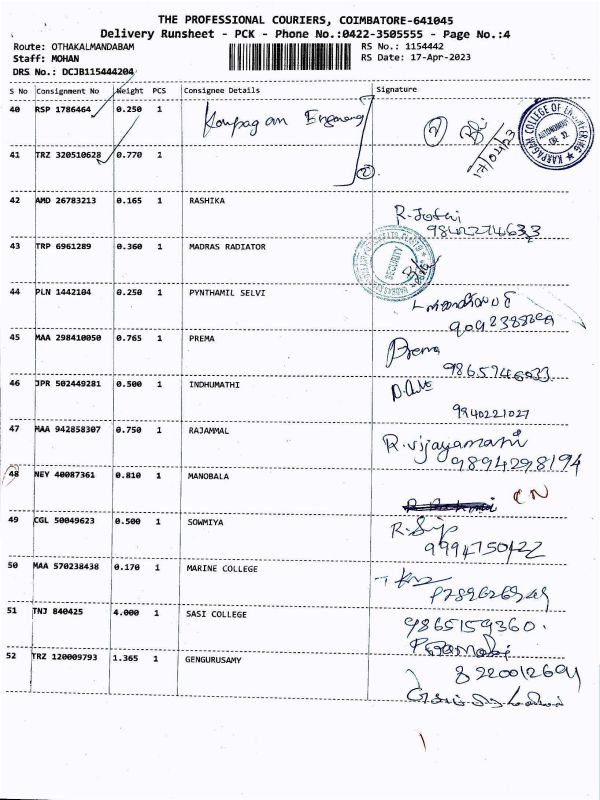 THE PROFESSIONAL COURIERS, COIMBATORE-641045
Delivery Runsheet - PCK - Phone No.:0422-3505555 - Page No.:4
Route: OTHAKALMANDABAM RS No.: 1154442
Staff: MOHAN RS Date: 17-Apr-2023
DRS No.: DCJB115444204
S No Consignment No Weight PCS Consignee Details Signature
40 RSP 1786464 0.250 1
2 17/04/23
KARPAGAM COLLEGE OF ENGINEERING
AUTONOMOUS
CBE 32.
41 TRZ 320510628 0.770 1 2
42 AMD 26783213 0.165 1 RASHIKA
9842274633
43 TRP 6961289 0.360 1 MADRAS RADIATOR
SECURITY
44 PLN 1442104 0.250 1 PYNTHAMIL SELVI
45 MAA 298410050 0.765 1 PREMA Prema
46 JPR 502449281 0.500 1 INDHUMATHI
9940221027
47 MAA 942858307 0.750 1 RAJAMMAL R.vijayamani
9894298194
48 NEY 40087361 0.810 1 MANOBALA
CN
49 CGL 50049623 0.500 1 SOWMIYA
9994750422
50 MAA 570238438 0.170 1 MARINE COLLEGE
51 TNJ 840425 4.000 1 SASI COLLEGE 9865159360.
52 TRZ 120009793 1.365 1 GENGURUSAMY